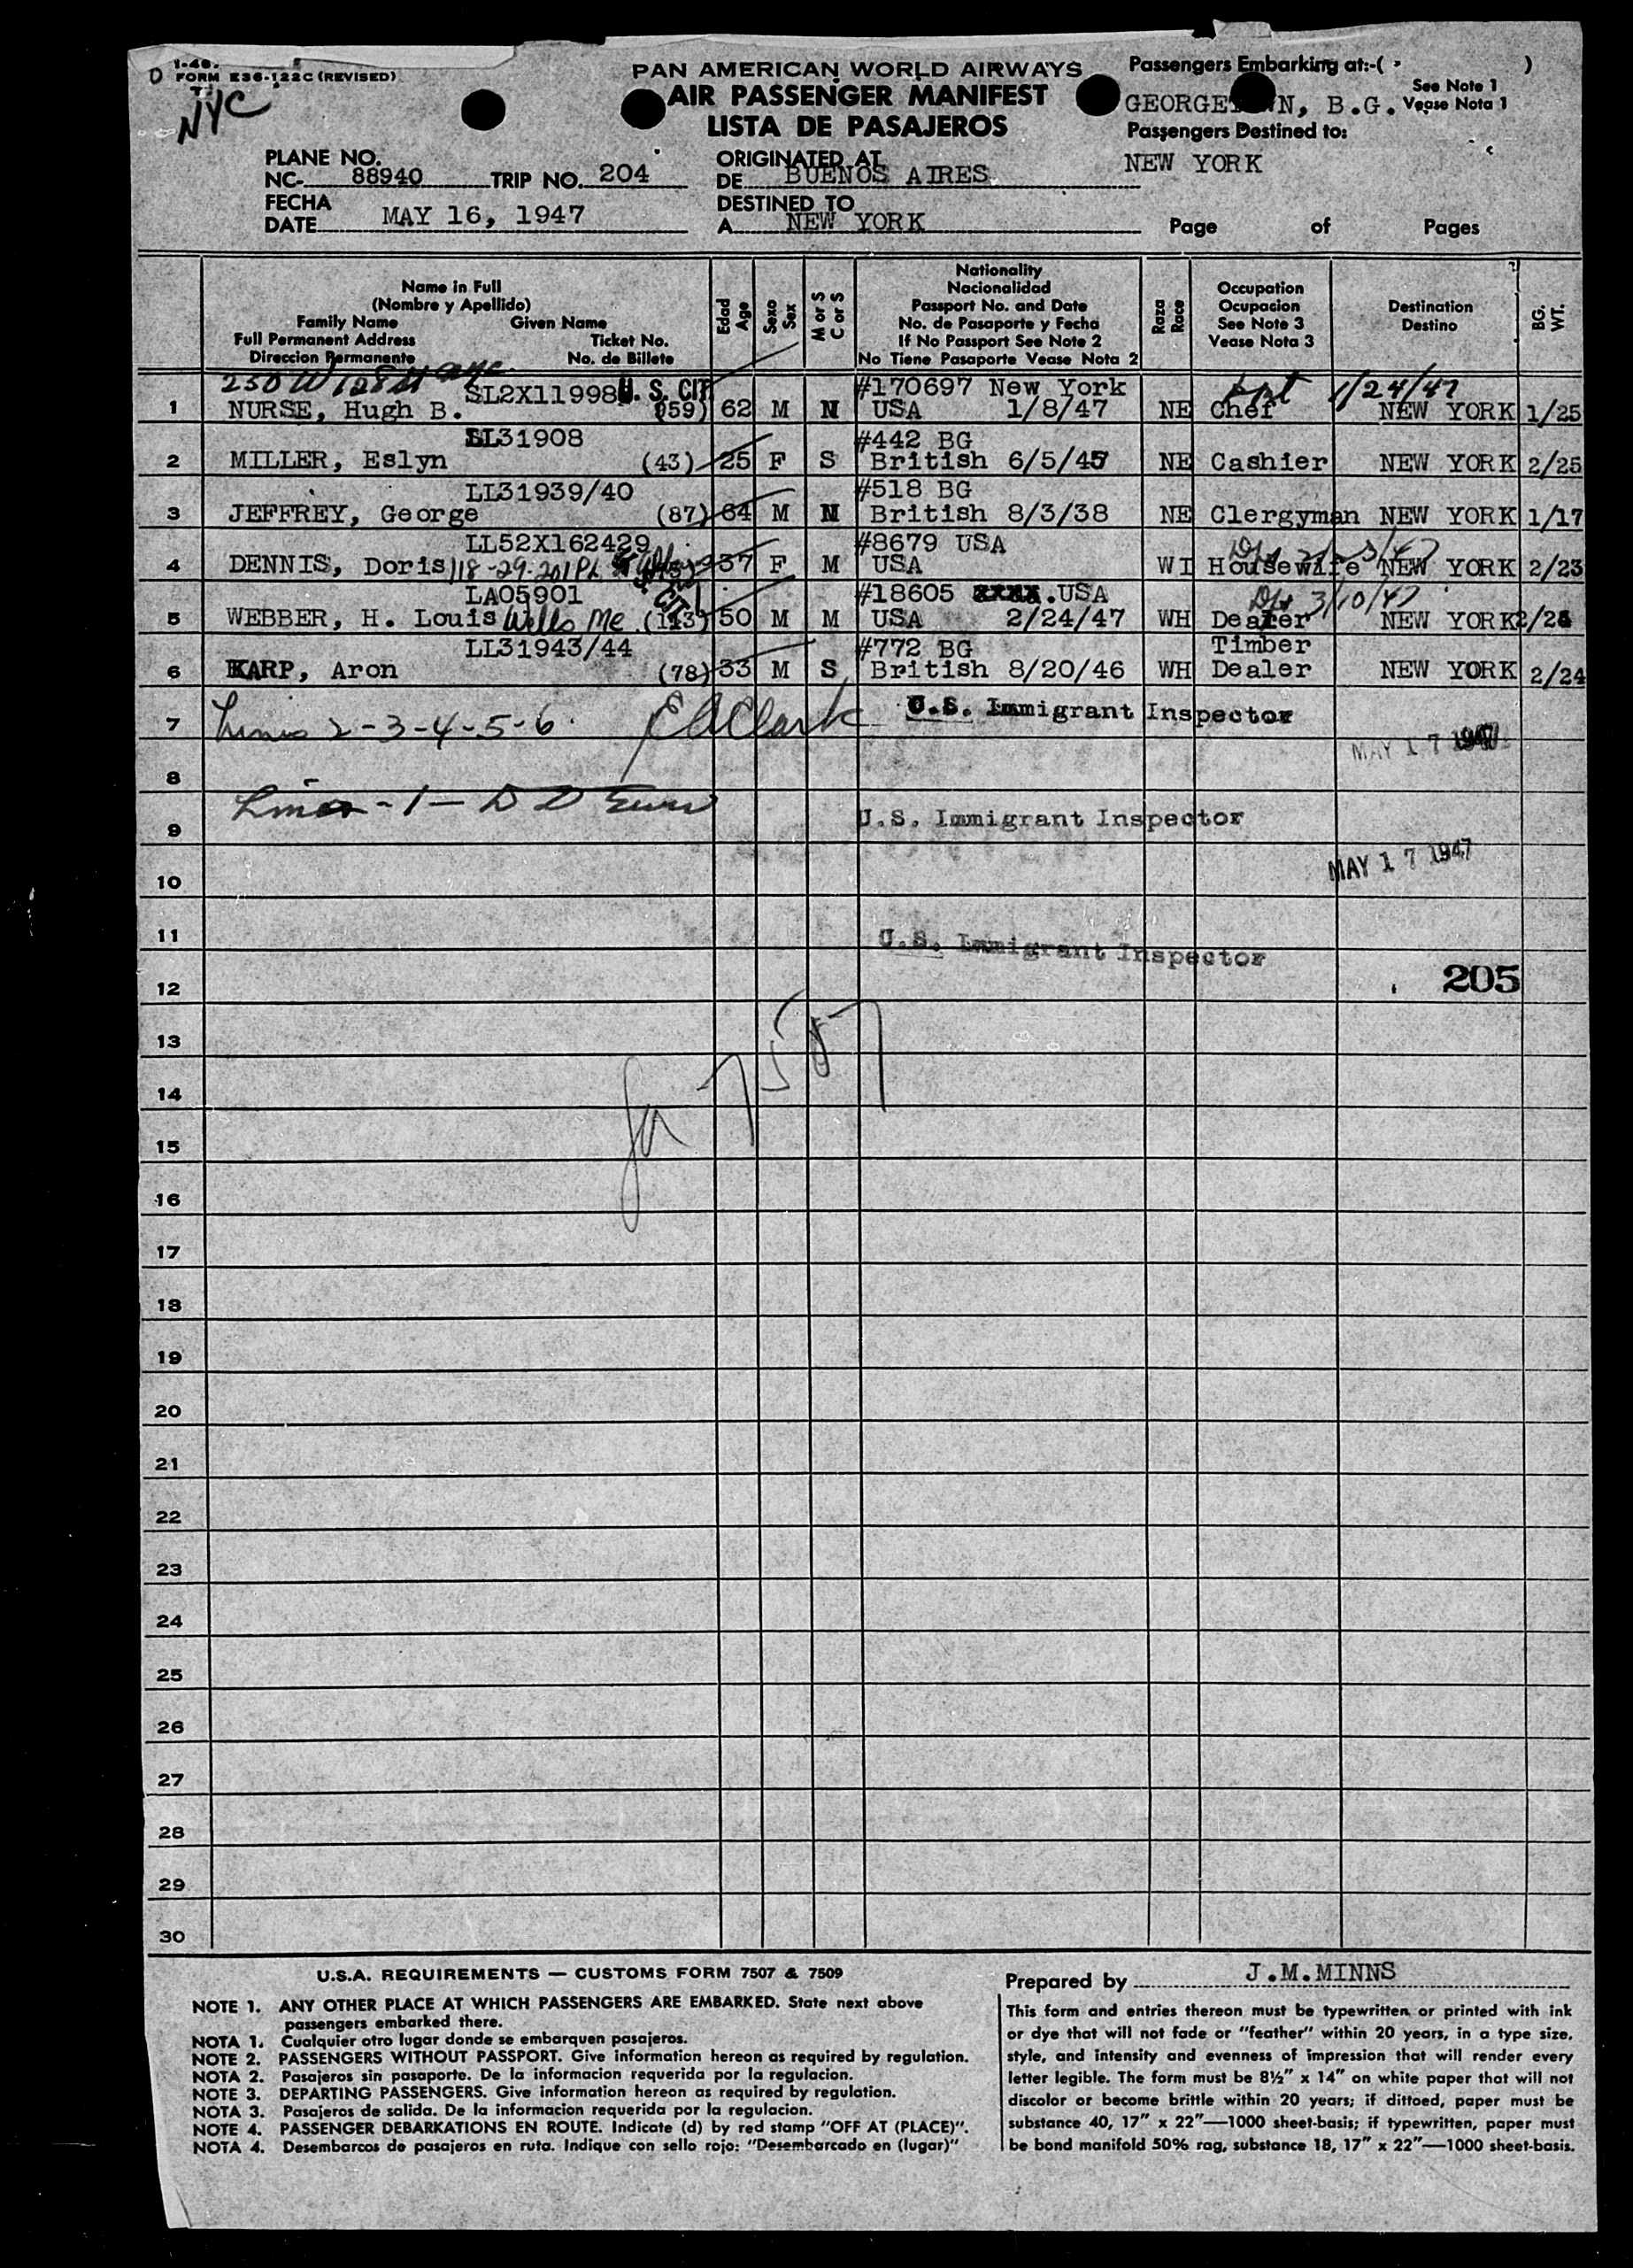 I-46.
FORM E36-122C (REVISED)
NYC
PAN AMERICAN WORLD AIRWAYS
AIR PASSENGER MANIFEST
LISTA DE PASAJEROS
Passengers Embarking at:-( )
See Note 1
GEORGETOWN, B.G. Vease Nota 1
Passengers Destined to:
NEW YORK
PLANE NO.
NC- 88940 TRIP NO. 204
FECHA
DATE MAY 16, 1947
ORIGINATED AT
DE BUENOS AIRES
DESTINED TO
A NEW YORK
Page of Pages
Name in Full
(Nombre y Apellido)
Family Name Given Name
Full Permanent Address Ticket No.
Direccion Permanente No. de Billete
Edad Age
Sexo Sex
M or S C or S
Nationality
Nacionalidad
Passport No. and Date
No. de Pasaporte y Fecha
If No Passport See Note 2
No Tiene Pasaporte Vease Nota 2
Raza Race
Occupation
Ocupacion
See Note 3
Vease Nota 3
Destination
Destino
BG. WT.
250 W 128 St nyc. SL2X11998 U. S. CIT #170697 New York 1/24/47
1 NURSE, Hugh B. (59) 62 M M USA 1/8/47 NE Chef NEW YORK 1/25
SL31908 #442 BG
2 MILLER, Eslyn (43) 25 F S British 6/5/45 NE Cashier NEW YORK 2/25
LL31939/40 #518 BG
3 JEFFREY, George (87) 64 M M British 8/3/38 NE Clergyman NEW YORK 1/17
LL52X162429 #8679 USA
4 DENNIS, Doris 118-29-201 Pl 37 F M USA WI Housewife NEW YORK 2/23
LA05901 #18605 xxxx.USA 3/10/47
5 WEBBER, H. Louis Wells Me. (113) 50 M M USA 2/24/47 WH Dealer NEW YORK
LL31943/44 #772 BG Timber
6 KARP, Aron (78) 33 M S British 8/20/46 WH Dealer NEW YORK 2/24
7 Lines 2-3-4-5-6. E A Clark U.S. Immigrant Inspector
MAY 17 1947
8
Lines - 1 -
9 U.S. Immigrant Inspector
MAY 17 1947
10
11 U.S. Immigrant Inspector
12 205
13
7587
14
15
16
17
18
19
20
21
22
23
24
25
26
27
28
29
30
U.S.A. REQUIREMENTS — CUSTOMS FORM 7507 & 7509
NOTE 1. ANY OTHER PLACE AT WHICH PASSENGERS ARE EMBARKED. State next above
passengers embarked there.
NOTA 1. Cualquier otro lugar donde se embarquen pasajeros.
NOTE 2. PASSENGERS WITHOUT PASSPORT. Give information hereon as required by regulation.
NOTA 2. Pasajeros sin pasaporte. De la informacion requerida por la regulacion.
NOTE 3. DEPARTING PASSENGERS. Give information hereon as required by regulation.
NOTA 3. Pasajeros de salida. De la informacion requerida por la regulacion.
NOTE 4. PASSENGER DEBARKATIONS EN ROUTE. Indicate (d) by red stamp "OFF AT (PLACE)".
NOTA 4. Desembarcos de pasajeros en ruta. Indique con sello rojo: "Desembarcado en (lugar)"
Prepared by J.M.MINNS
This form and entries thereon must be typewritten or printed with ink
or dye that will not fade or "feather" within 20 years, in a type size,
style, and intensity and evenness of impression that will render every
letter legible. The form must be 8½" x 14" on white paper that will not
discolor or become brittle within 20 years; if dittoed, paper must be
substance 40, 17" x 22"—1000 sheet-basis; if typewritten, paper must
be bond manifold 50% rag, substance 18, 17" x 22"—1000 sheet-basis.